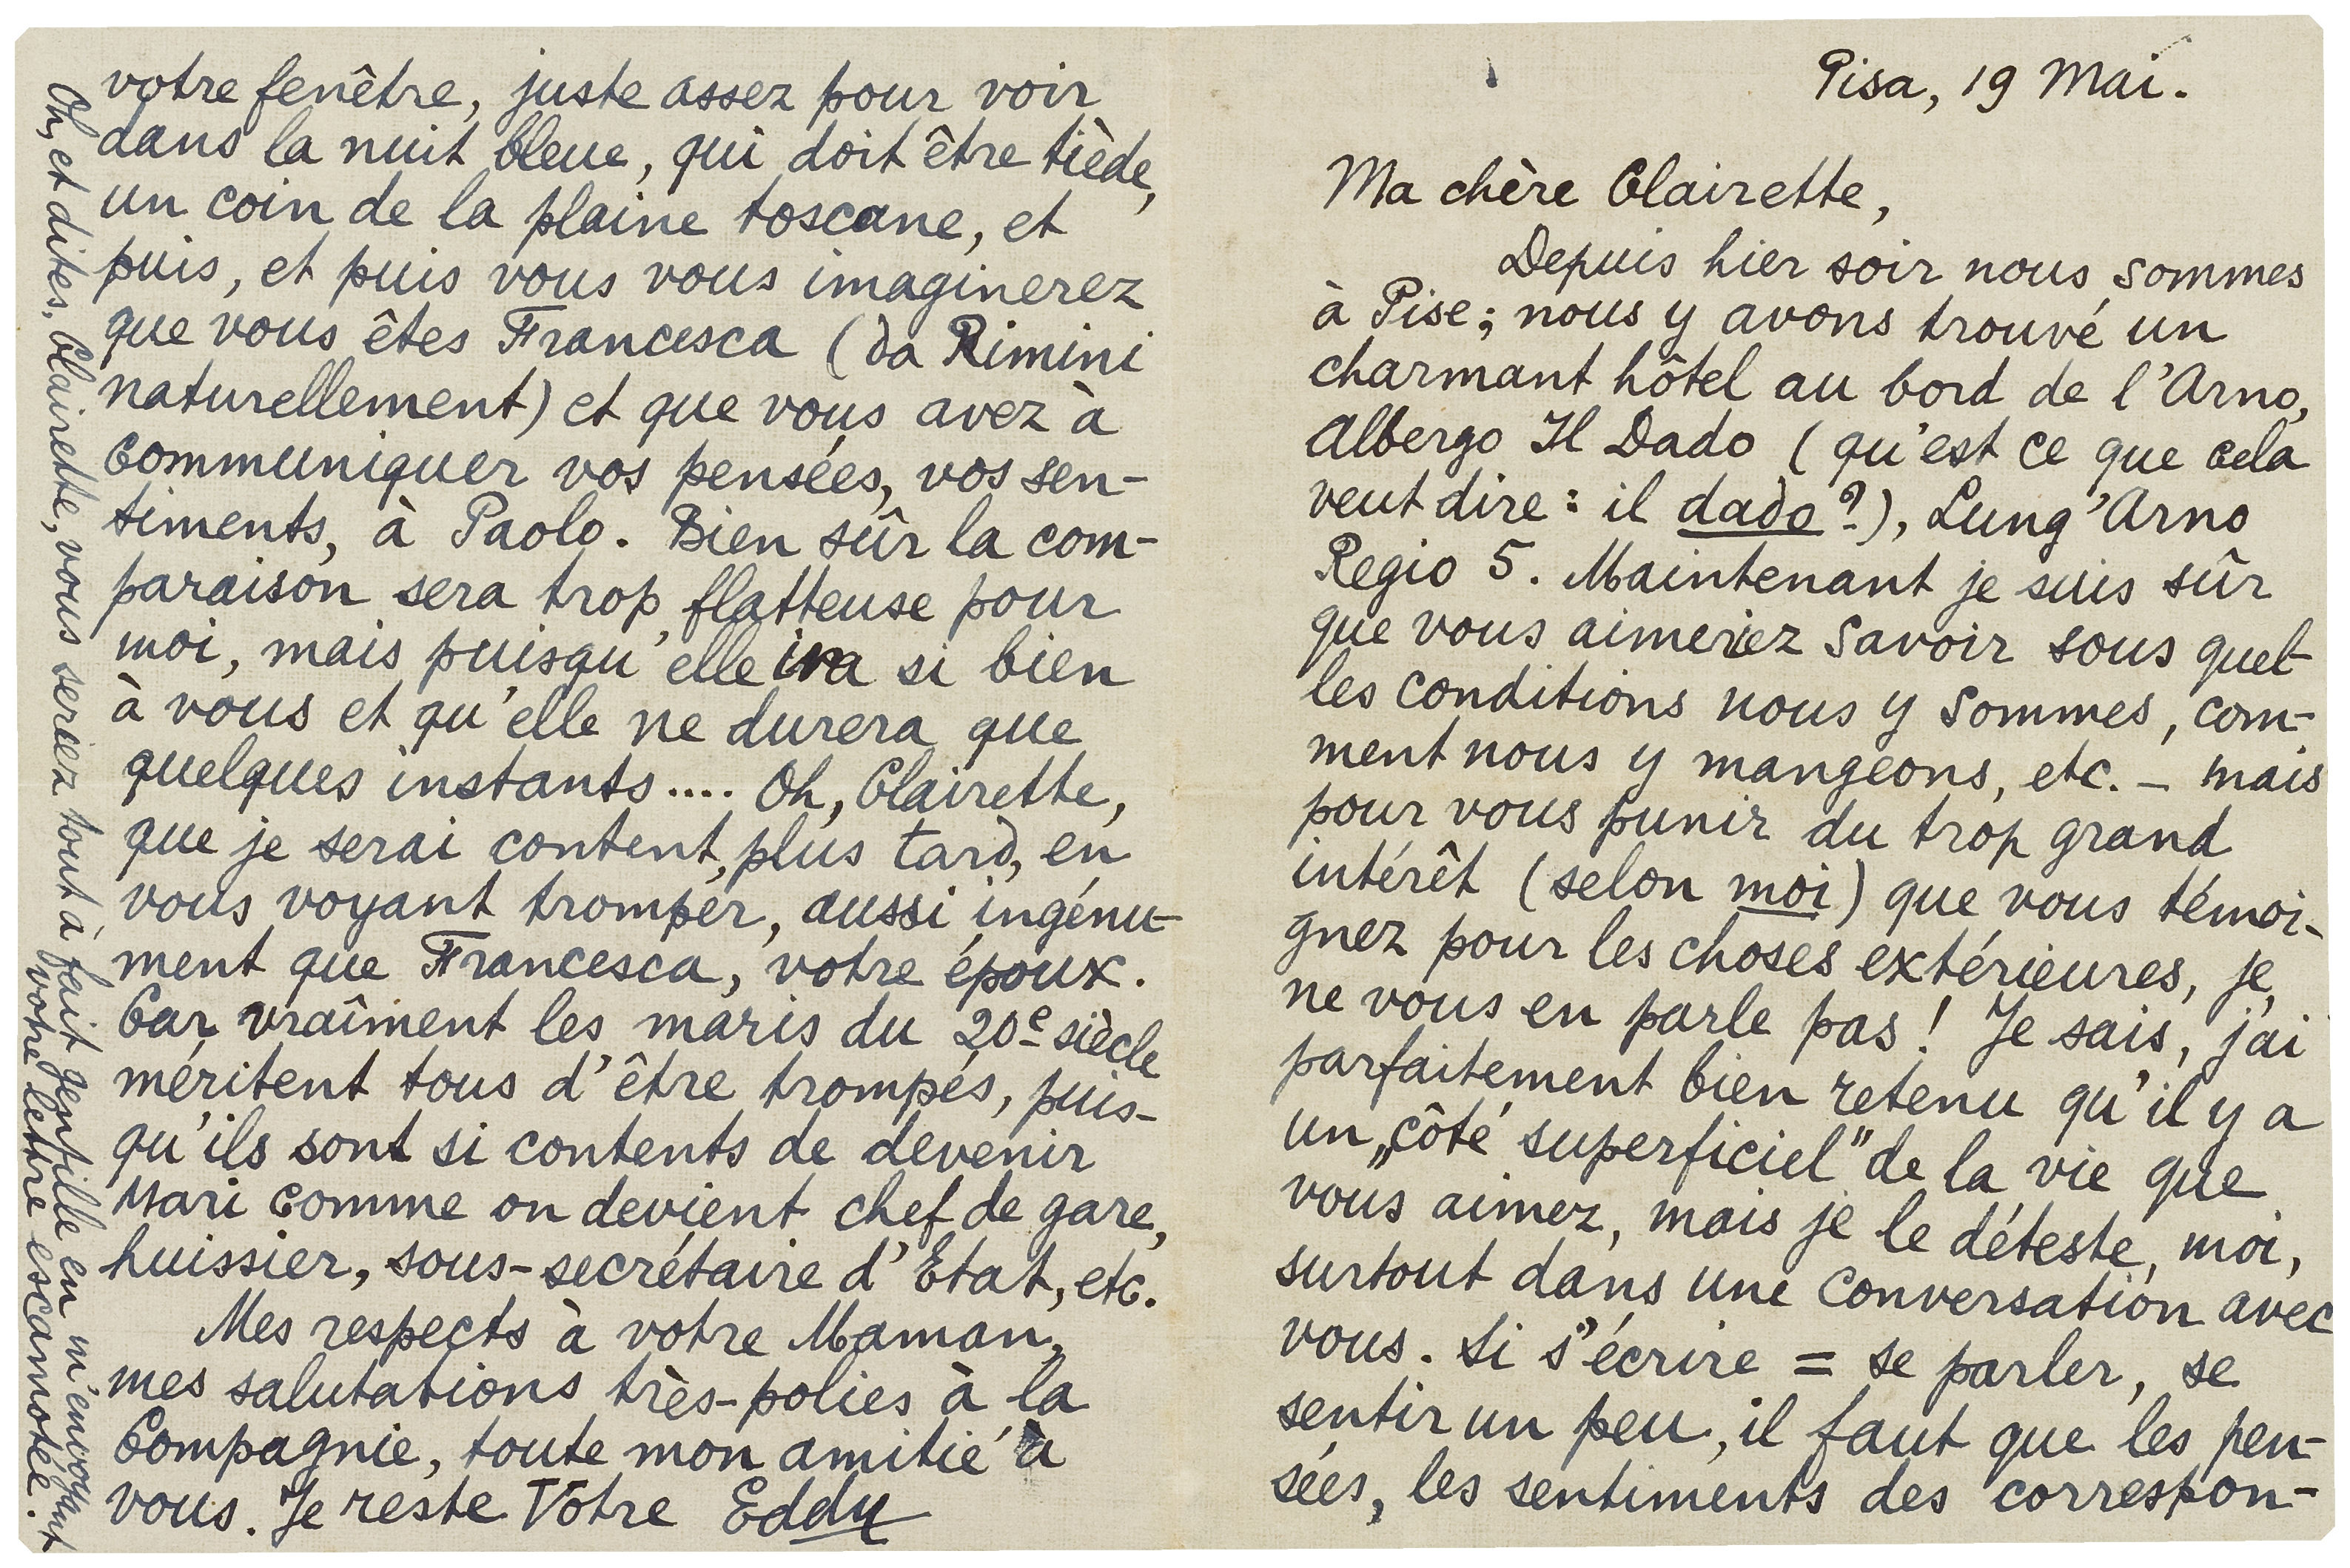 Pisa, 19 Mai.
Ma chère Clairette,
Depuis hier soir nous sommes
à Pise; nous y avons trouvé un
charmant hôtel au bord de l'Arno,
Albergo Il Dado (qu'est ce que cela
veut dire: il dado?), Lung'Arno
Regio 5. Maintenant je suis sûr
que vous aimeriez savoir sous quel-
les conditions nous y sommes, com-
ment nous y mangeons, etc. – mais
pour vous punir du trop grand
intérêt (selon moi) que vous témoi-
gnez pour les choses extérieures, je
ne vous en parle pas! Je sais, j'ai
parfaitement bien retenu qu'il y a
un „côté superficiel” de la vie que
vous aimez, mais je le déteste, moi,
surtout dans une conversation avec
vous. Si s'écrire = se parler, se
sentir un peu, il faut que les pen-
sées, les sentiments des correspon-
votre fenêtre, juste assez pour voir
dans la nuit bleue, qui doit être tiède,
un coin de la plaine toscane, et
puis, et puis vous vous imaginerez
que vous êtes Francesca (da Rimini
naturellement) et que vous avez à
communiquer vos pensées, vos sen-
timents, à Paolo. Bien sûr la com-
paraison sera trop flatteuse pour
moi, mais puisqu'elle ira si bien
à vous et qu'elle ne durera que
quelques instants.... Oh, Clairette,
que je serai content, plus tard, en
vous voyant tromper, aussi ingénu-
ment que Francesca, votre époux.
Car vraîment les maris du 20e siècle
méritent tous d'être trompés, puis-
qu'ils sont si contents de devenir
mari comme on devient chef de gare,
huissier, sous-secrétaire d'Etat, etc.
Mes respects à votre Maman,
mes salutations très-polies à la
Compagnie, toute mon amitié à
vous. Je reste Votre Eddy
Oh, et dites, Clairette, vous seriez tout à fait gentille en m'envoyant
votre lettre escamotée.